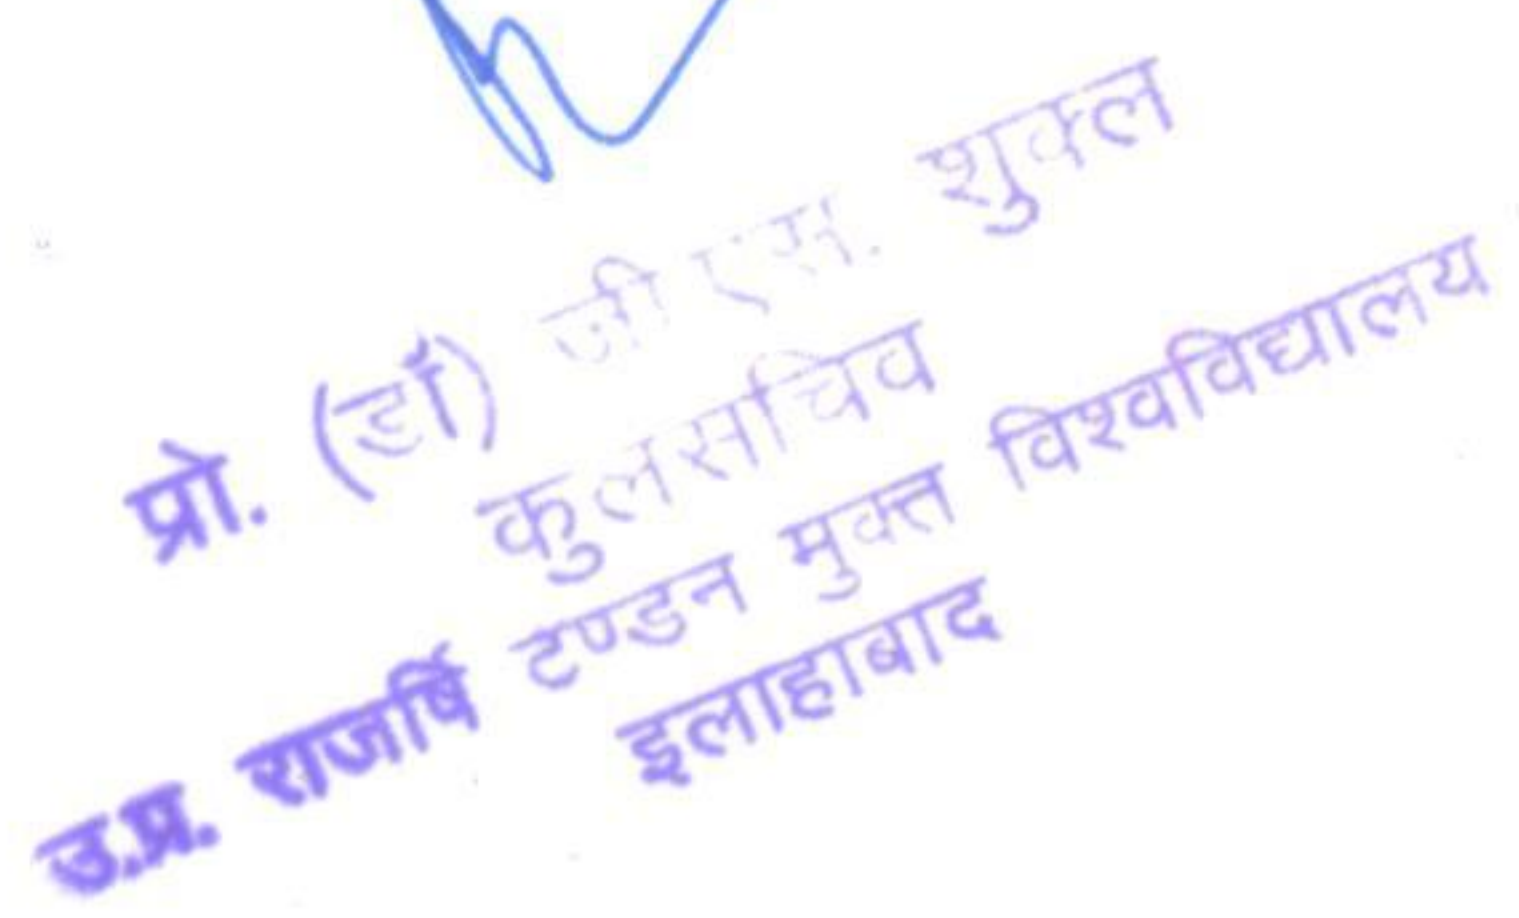 प्रो. (डॉ) जी एस. शुक्ल
कुलसचिव
उ.प्र. राजर्षि टण्डन मुक्त विश्वविद्यालय
इलाहाबाद